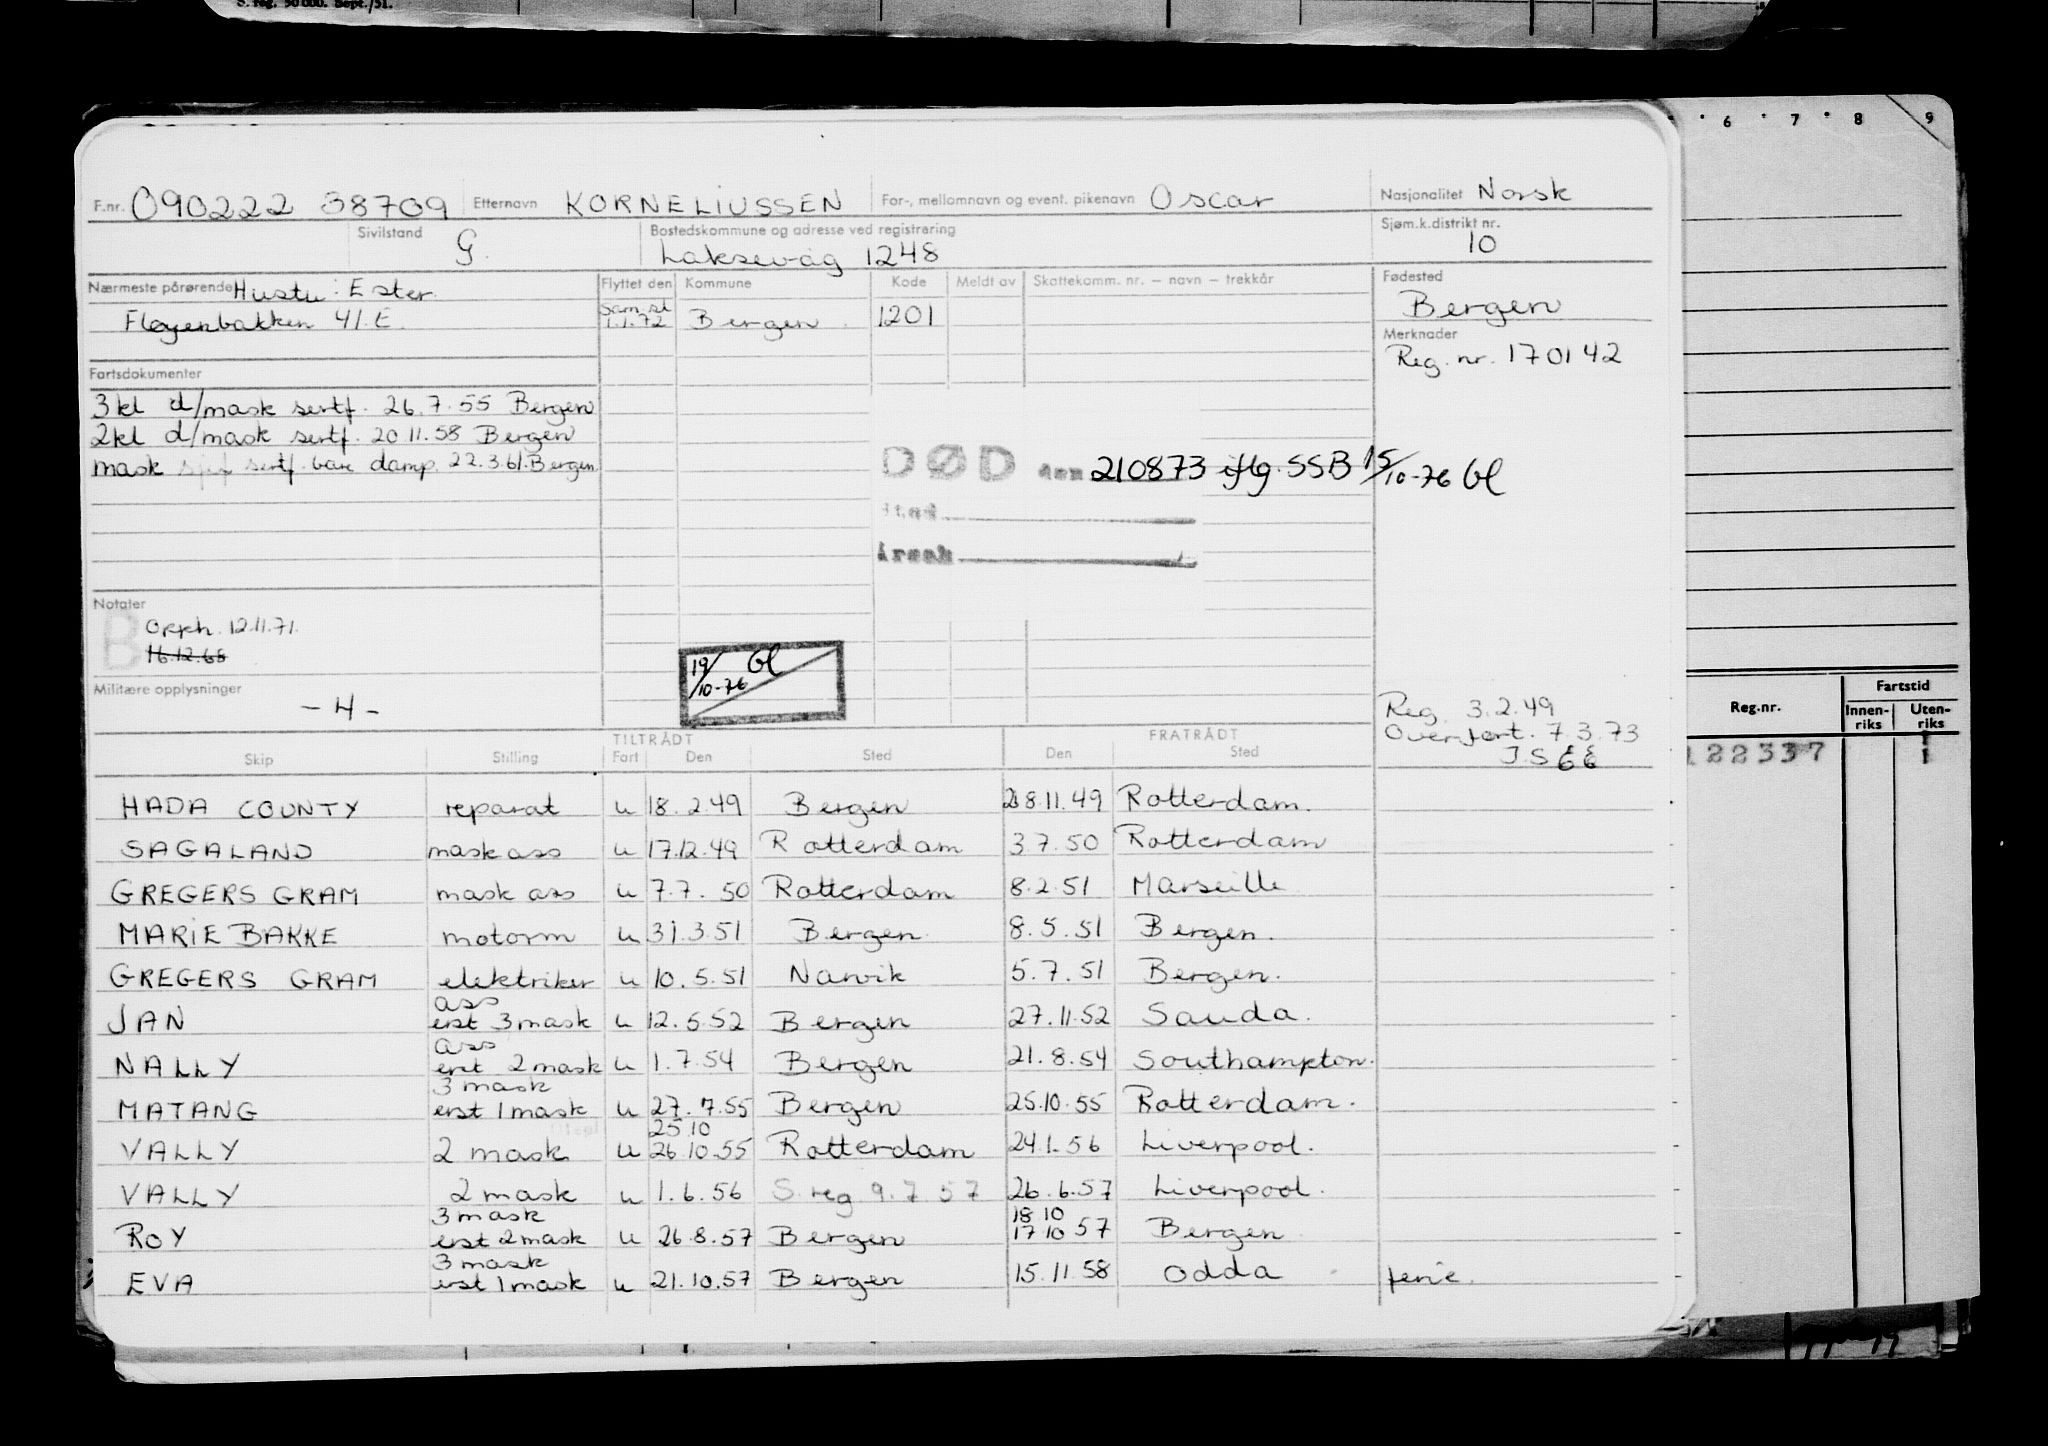 S. reg. 50 000. Sept./51.
6 7 8 9
F.nr. 090222 38709 Etternavn KORNELIUSSEN For-, mellomnavn og event. pikenavn Oscar Nasjonalitet Norsk
Sivilstand G. Bostedskommune og adresse ved registrering Laksevåg 1248 Sjøm.k.distrikt nr. 10
Nærmeste pårørende Hustru: Ester. Flyttet den Kommune Kode Meldt av Skattekomm. nr. — navn — trekkår Fødested
Fløyenbakken 41.E. Sam.sl. 1.1.72 Bergen 1201 Bergen
Merknader
Reg. nr. 170142
Fartsdokumenter
3kl d/mask sertf. 26.7.55 Bergen
2kl d/mask sertf. 20.11.58 Bergen
mask sjef sertf. bare damp. 22.3.61. Bergen
DØD den 210873 iflg. SSB 15/10-76 Gl
Sted
Årsak
Notater
B Opph. 12.11.71.
16.12.68
19/10-76 Gl
Militære opplysninger
- H -
Reg. 3.2.49
Overført. 7.3.73
Reg.nr. Fartstid
Innen-riks Uten-riks
122337 1
TILTRÅDT FRATRÅDT
Skip Stilling Fart Den Sted Den Sted
HADA COUNTY reparat u 18.2.49 Bergen 28.11.49 Rotterdam.
SAGALAND mask ass u 17.12.49 Rotterdam 3.7.50 Rotterdam
GREGERS GRAM mask ass u 7.7.50 Rotterdam 8.2.51 Marseille
MARIE BAKKE motorm u 31.3.51 Bergen 8.5.51 Bergen.
GREGERS GRAM elektriker u 10.5.51 Narvik 5.7.51 Bergen.
JAN ass erst 3 mask u 12.5.52 Bergen 27.11.52 Sauda.
NALLY ass erst 2 mask u 1.7.54 Bergen 21.8.54 Southampton.
MATANG 3 mask erst 1 mask u 27.7.55 Bergen 25.10.55 Rotterdam.
VALLY 2 mask u 25.10 26.10.55 Rotterdam 24.1.56 Liverpool.
VALLY 2 mask u 1.6.56 S.reg 9.7.57 26.6.57 Liverpool.
ROY 3 mask erst 2 mask u 26.8.57 Bergen 18 10 17 10 57 Bergen
EVA 3 mask erst 1 mask u 21.10.57 Bergen 15.11.58 Odda ferie.